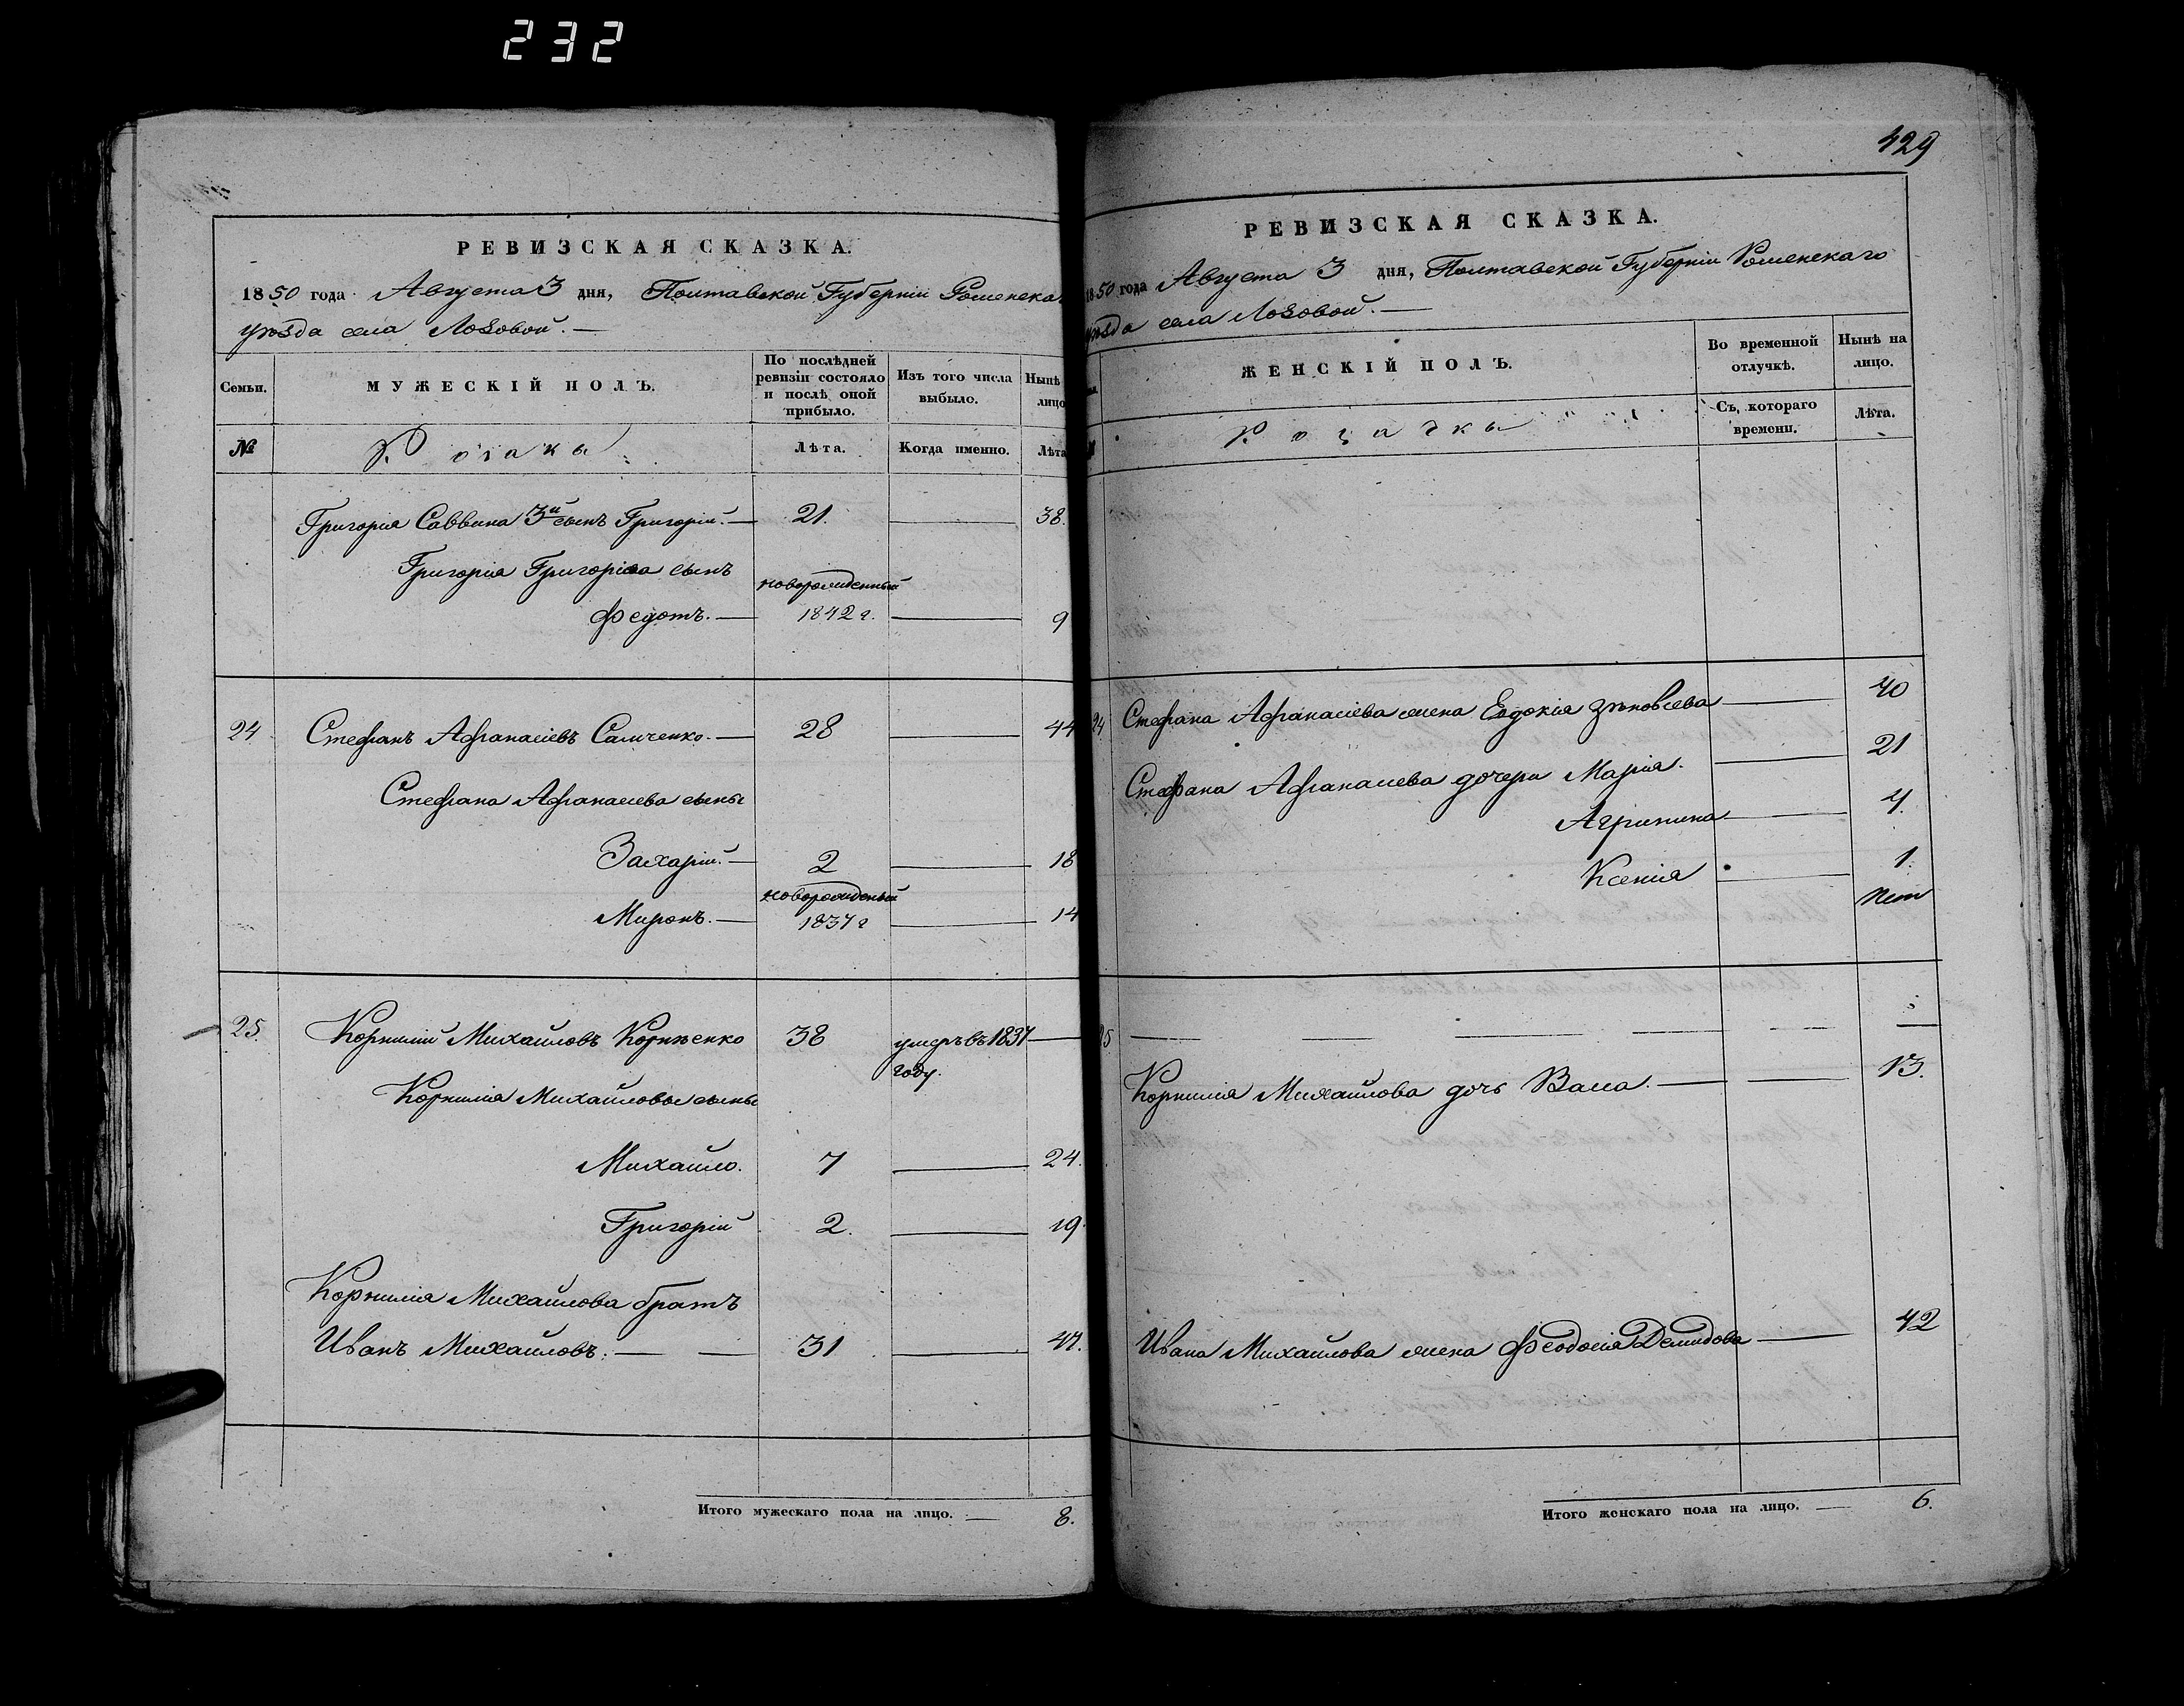 232
РЕВИЗСКАЯ СКАЗКА.
1850 года Августа 3 дня, Полтавской Губерніи Роменска
уѣзда села Лозовой. —
Семьи.
МУЖЕСКІЙ ПОЛЪ.
По послѣдней
ревизіи состояло
и послѣ оной
прибыло.
Изъ того числа
выбыло.
Нынѣ
лицо
№
Козаки
Лѣта.
Когда именно.
Лѣта
Григорія Саввина 3й сынъ Григорій. — 21. — 38.
Григорія Григоріева сынъ
новорожденный
Федотъ. — 1842 г. — 9
24 Стефанъ Афанасіевъ Самченко. — 28 — 44
Стефана Афанасиева сыны
Захарій. — 2 — 18
новорожденный
Миронъ. — 1837 г — 14
25. Корнилій Михайловъ Корніенко 38 умеръ въ 1837 —
году.
Корнилія Михайловы сыны
Михайло. 7 — 24.
Григорій 2. — 19.
Корнилія Михайлова братъ
Иванъ Михайловъ. — — 31 — 47.
Итого мужескаго пола на лицо. — 8.
429
РЕВИЗСКАЯ СКАЗКА.
1850 года Августа 3 дня, Полтавской Губерніи Роменскаго
уѣзда села Лозовой. —
ЖЕНСКІЙ ПОЛЪ.
Во временной
отлучкѣ.
Нынѣ на
лицо.
Козачки
Съ котораго
времени.
Лѣта.
24 Стефана Афанасіева жена Евдокія Зѣновіева — 40
Стефана Афанасиева дочери Марія. — 21
Агрипина — 4.
Ксенія — 1.
лет
25 — — — — — —
Корнилія Михайлова дочь Васса. — — 13.
Ивана Михайлова жена Феодосія Демидова — 42
Итого женскаго пола на лицо. — 6.